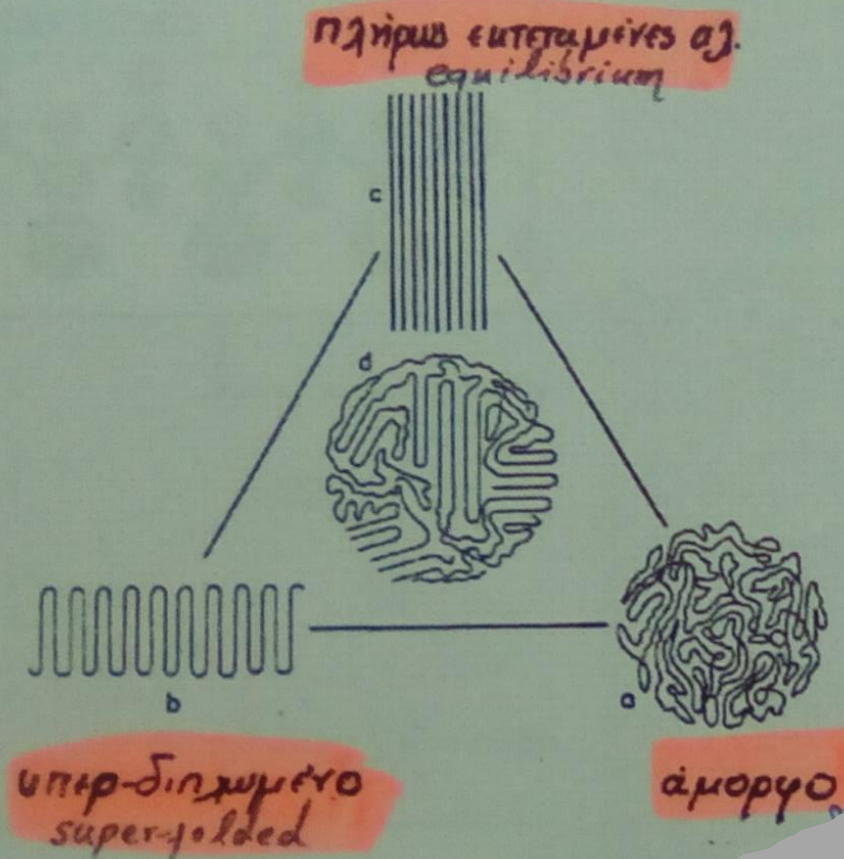 πλήρως εκτεταμένες αλ.
equilibrium
c
d
b
a
υπερ-διπλωμένο
super-folded
άμορφο